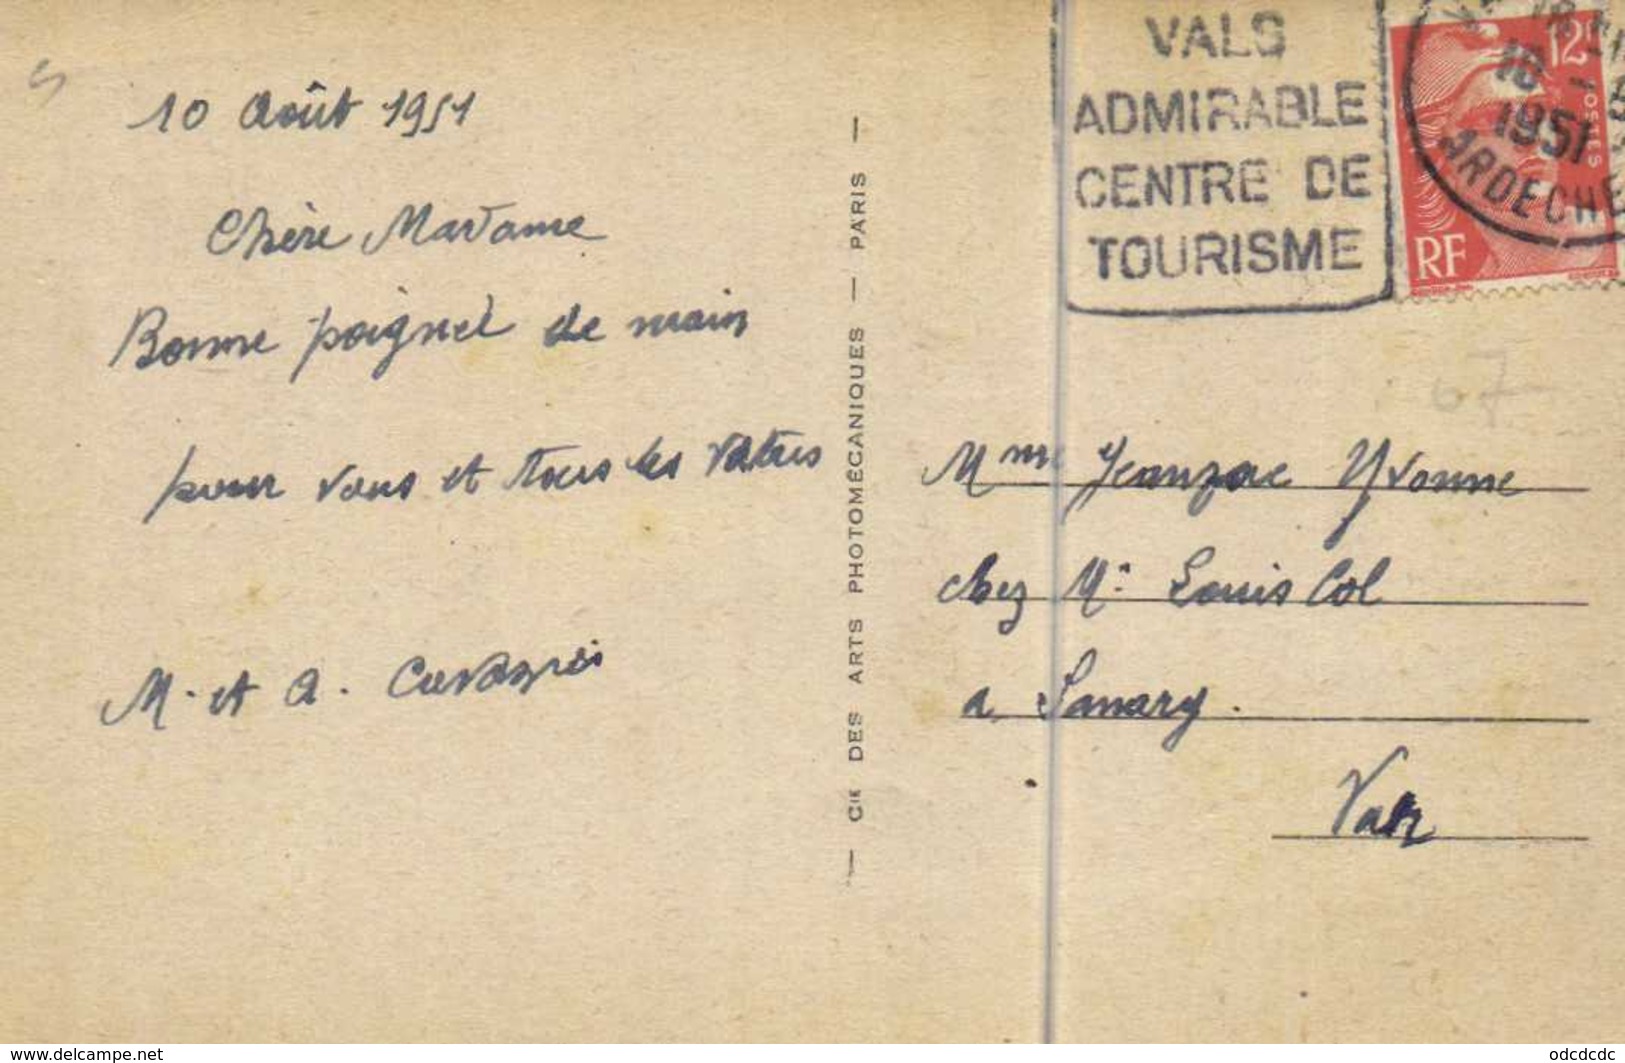 10 Août 1951
Chère Madame
Bonne poignée de main
pour vous et tous les vôtres
M. et A.
— Cie DES ARTS PHOTOMÉCANIQUES — PARIS —
VALS
ADMIRABLE
CENTRE DE
TOURISME
12F
POSTES
RF
1951
ARDECHE
67
Mme Jeanzac Yvonne
chez Mr Louis Col
a Sanary.
Var
www.delcampe.net
odcdcdc